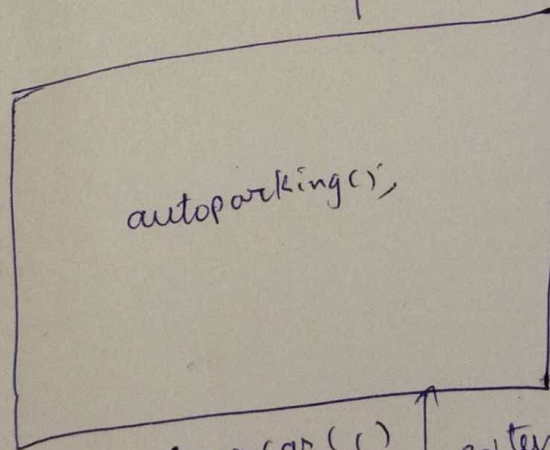 autoparking();
car(c)